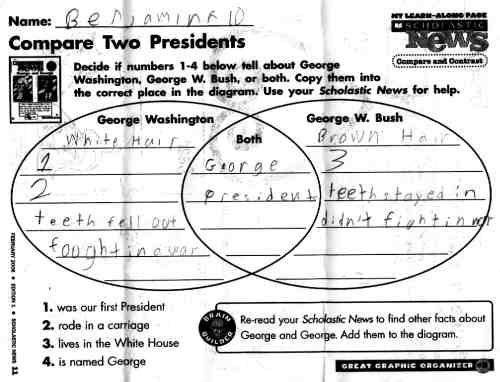 Name: Benjamin # 10
MY LEARN-ALONG PAGE
SCHOLASTIC
News
Compare and Contrast
Compare Two Presidents
Decide if numbers 1-4 below tell about George
Washington, George W. Bush, or both. Copy them into
the correct place in the diagram. Use your Scholastic News for help.
George Washington
Both
George W. Bush
White Hair
Brown Hair
1
George
3
2
President
teeth stayed in
teeth fell out
didn't fight in war
fought in a war
1. was our first President
2. rode in a carriage
3. lives in the White House
4. is named George
BRAIN BUILDER
Re-read your Scholastic News to find other facts about
George and George. Add them to the diagram.
GREAT GRAPHIC ORGANIZER
FEBRUARY 2006 • EDITION 1 • SCHOLASTIC NEWS 11